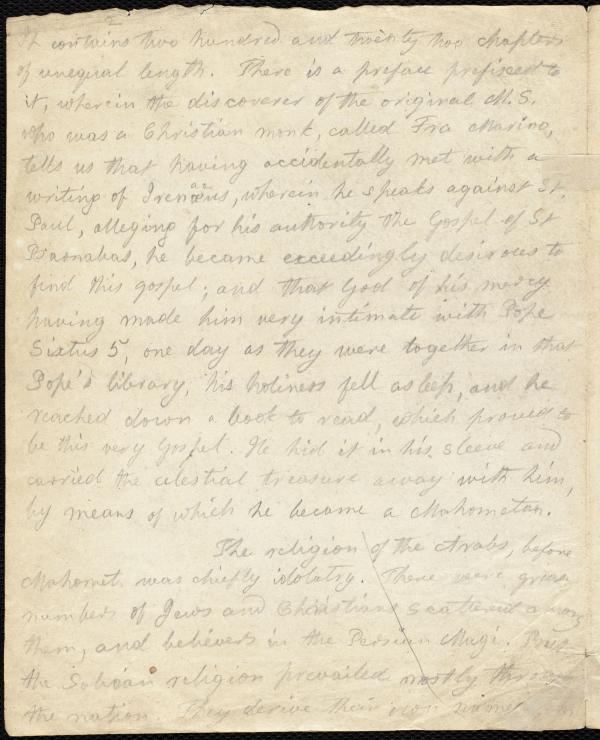 It contains two hundred and twenty two chapters
of unequal length. There is a preface prefixed to
it, wherein the discoverer of the original M.S.
who was a Christian monk, called Fra Marino,
tells us that having accidentally met with a
writing of Irenæus, wherein he speaks against St.
Paul, alleging for his authority the Gospel of St
Barnabas, he became exceedingly desirous to
find this gospel; and that God of his mercy
having made him very intimate with Pope
Sixtus 5, one day as they were together in that
Pope's library, his holiness fell asleep, and he
reached down a book to read, which proved to
be this very Gospel. He hid it in his sleeve and
carried the celestial treasure away with him,
by means of which he became a Mahometan.
The religion of the Arabs, before
Mahomet was chiefly idolatry. There were great
numbers of Jews and Christians scattered among
them, and believers in the Persian Magi. But
the Sabean religion prevailed mostly through
the nation. They derive their own name from